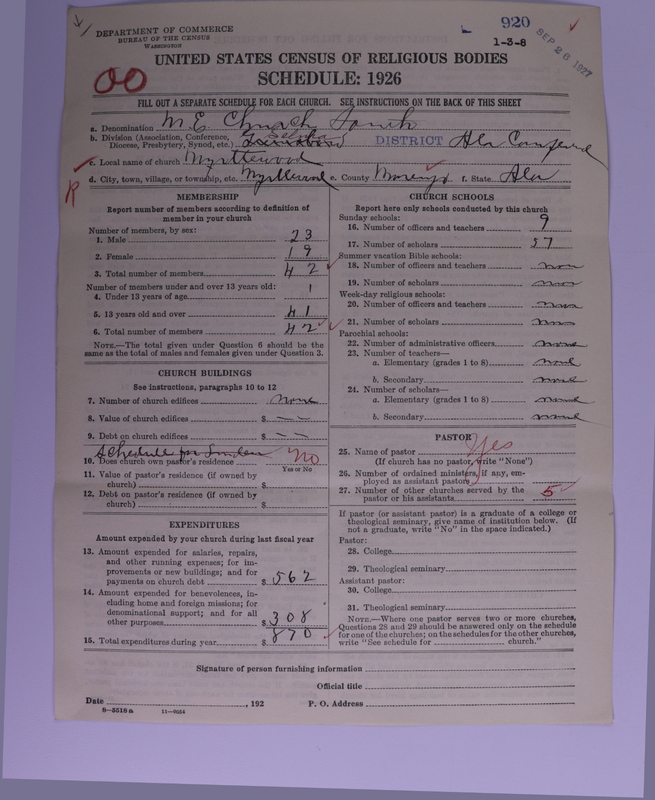 920
1-3-8
SEP 26 1927
DEPARTMENT OF COMMERCE
BUREAU OF THE CENSUS
WASHINGTON
UNITED STATES CENSUS OF RELIGIOUS BODIES
SCHEDULE: 1926
OO
FILL OUT A SEPARATE SCHEDULE FOR EACH CHURCH. SEE INSTRUCTIONS ON THE BACK OF THIS SHEET
a. Denomination M E Church South
b. Division (Association, Conference, Diocese, Presbytery, Synod, etc.) Selma DISTRICT Ala Conference
c. Local name of church Myrtlewood
d. City, town, village, or township, etc. Myrtlewood e. County Marengo f. State Ala
R
MEMBERSHIP
Report number of members according to definition of
member in your church
Number of members, by sex:
1. Male 23
2. Female 19
3. Total number of members 42
Number of members under and over 13 years old:
4. Under 13 years of age 1
5. 13 years old and over 41
6. Total number of members 42
NOTE.—The total given under Question 6 should be the
same as the total of males and females given under Question 3.
CHURCH BUILDINGS
See instructions, paragraphs 10 to 12
7. Number of church edifices none
8. Value of church edifices $ — —
9. Debt on church edifices $ — —
Schedule for
10. Does church own pastor's residence No
Yes or No
11. Value of pastor's residence (if owned by
church) $
12. Debt on pastor's residence (if owned by
church) $
EXPENDITURES
Amount expended by your church during last fiscal year
13. Amount expended for salaries, repairs,
and other running expenses; for im-
provements or new buildings; and for
payments on church debt $ 562
14. Amount expended for benevolences, in-
cluding home and foreign missions; for
denominational support; and for all
other purposes $ 308
15. Total expenditures during year $ 870
CHURCH SCHOOLS
Report here only schools conducted by this church
Sunday schools:
16. Number of officers and teachers 9
17. Number of scholars 37
Summer vacation Bible schools:
18. Number of officers and teachers non
19. Number of scholars non
Week-day religious schools:
20. Number of officers and teachers non
21. Number of scholars non
Parochial schools:
22. Number of administrative officers none
23. Number of teachers—
a. Elementary (grades 1 to 8) none
b. Secondary none
24. Number of scholars—
a. Elementary (grades 1 to 8) none
b. Secondary none
PASTOR
25. Name of pastor Yes
(If church has no pastor, write "None")
26. Number of ordained ministers, if any, em-
ployed as assistant pastors
27. Number of other churches served by the
pastor or his assistants 5
If pastor (or assistant pastor) is a graduate of a college or
theological seminary, give name of institution below. (If
not a graduate, write "No" in the space indicated.)
Pastor:
28. College
29. Theological seminary
Assistant pastor:
30. College
31. Theological seminary
NOTE.—Where one pastor serves two or more churches,
Questions 28 and 29 should be answered only on the schedule
for one of the churches; on the schedules for the other churches,
write "See schedule for church."
Signature of person furnishing information
Official title
Date , 192 P. O. Address
8-5518a 11-9554